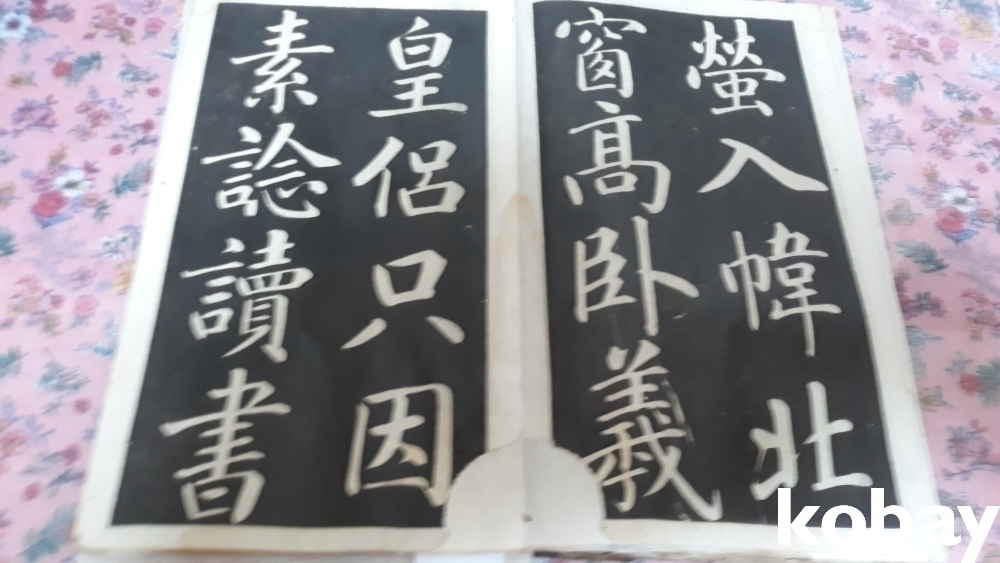 螢入幃北
窗髙卧羲
皇侶只因
素諗讀書
kobay